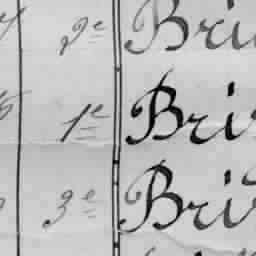 2e Bri
1e Bri
3e Bri